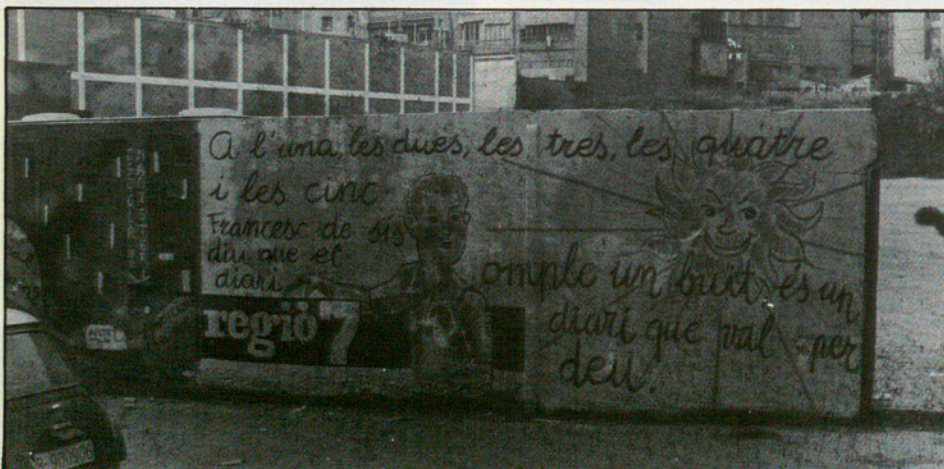 A l'una, les dues, les tres, les quatre
i les cinc
Francesc de sis
diu que el
diari
regió 7
omple un buit, és un
diari que val per
deu.